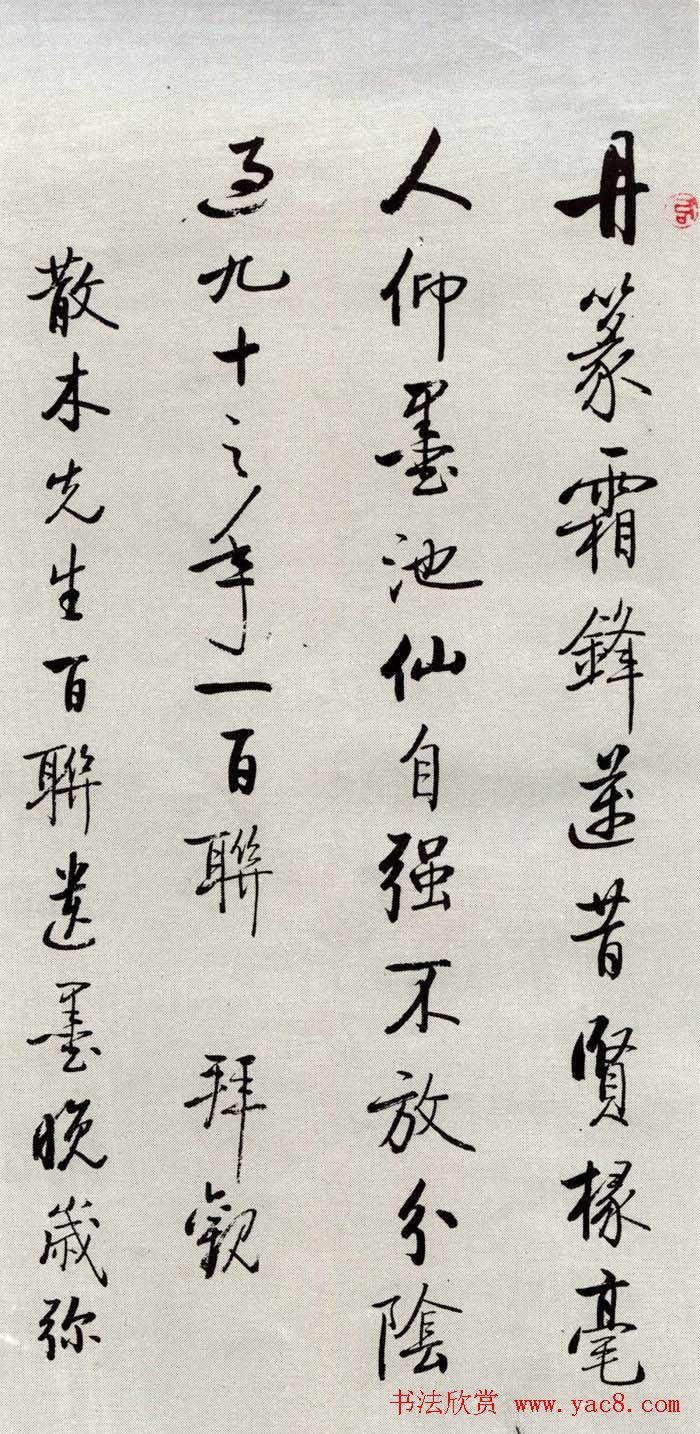 丹篆霜鋒邁昔賢椽毫
人仰墨池仙自强不放分陰
過九十之年一百聯 拜觀
散木先生百聯遺墨晚歲弥
书法欣赏 www.yac8.com